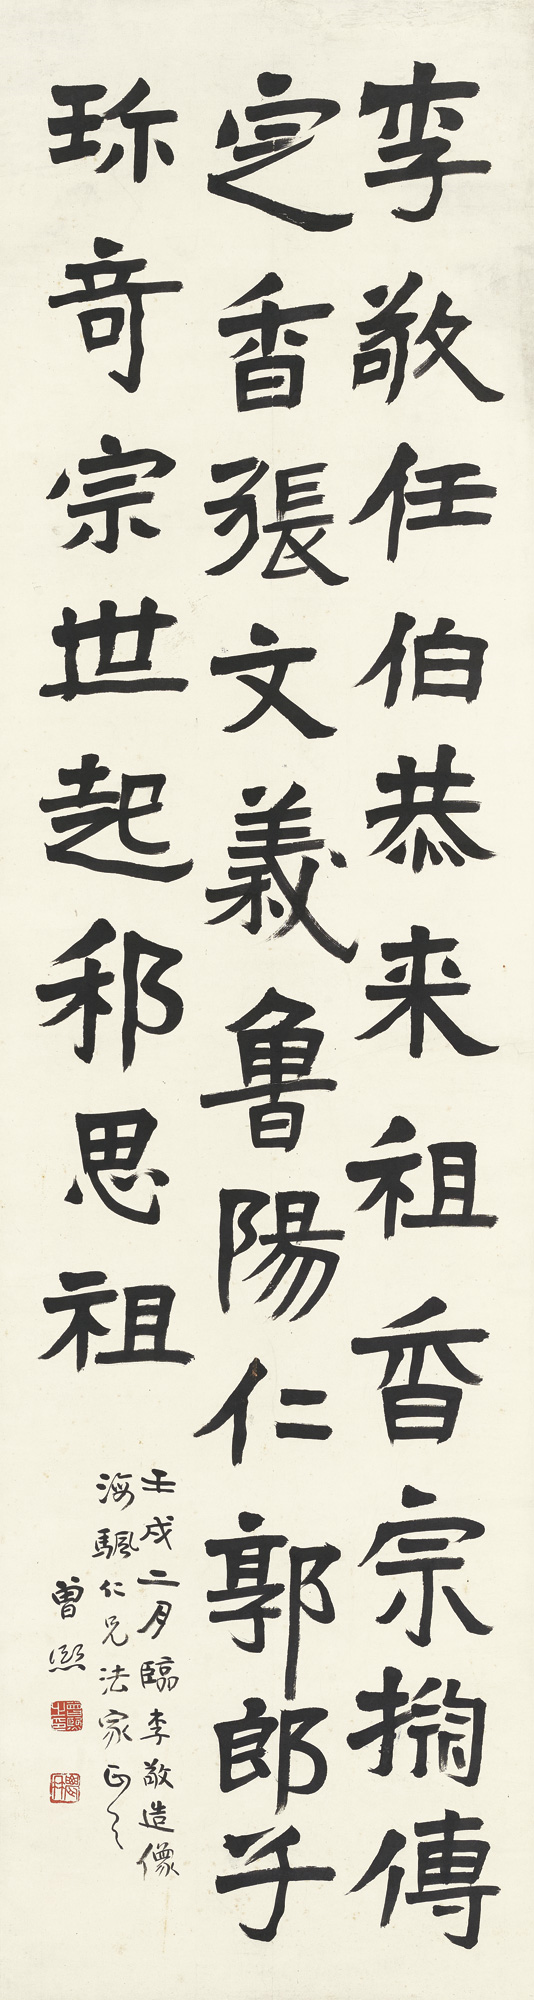 李敬任伯恭来祖香宗掬傅
定香張文義魯陽仁郭郎子
珎奇宗世起邳思祖
壬戌二月臨李敬造像
海颿仁兄法家正之
曾熙